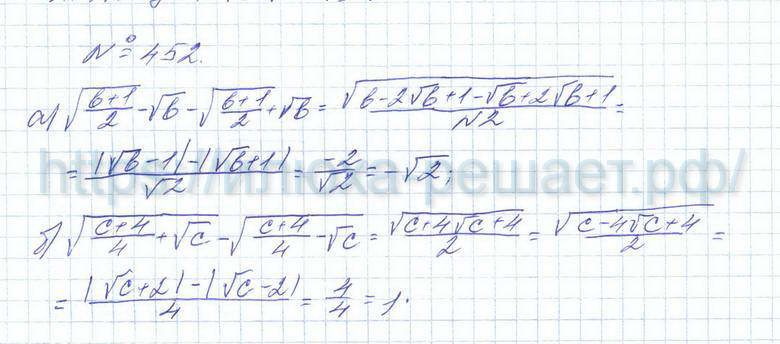 № 452.
а) √((b+1)/2 - √b) - √((b+1)/2 + √b) = √(b-2√b+1-√b+2√b+1)/√2 =
= (|√b-1|-|√b+1|)/√2 = -2/√2 = -√2;
https://илюха-решает.рф/
б) √((c+4)/4 + √c) - √((c+4)/4 - √c) = √(c+4√c+4)/2 = √(c-4√c+4)/2 =
= (|√c+2|-|√c-2|)/4 = 4/4 = 1.